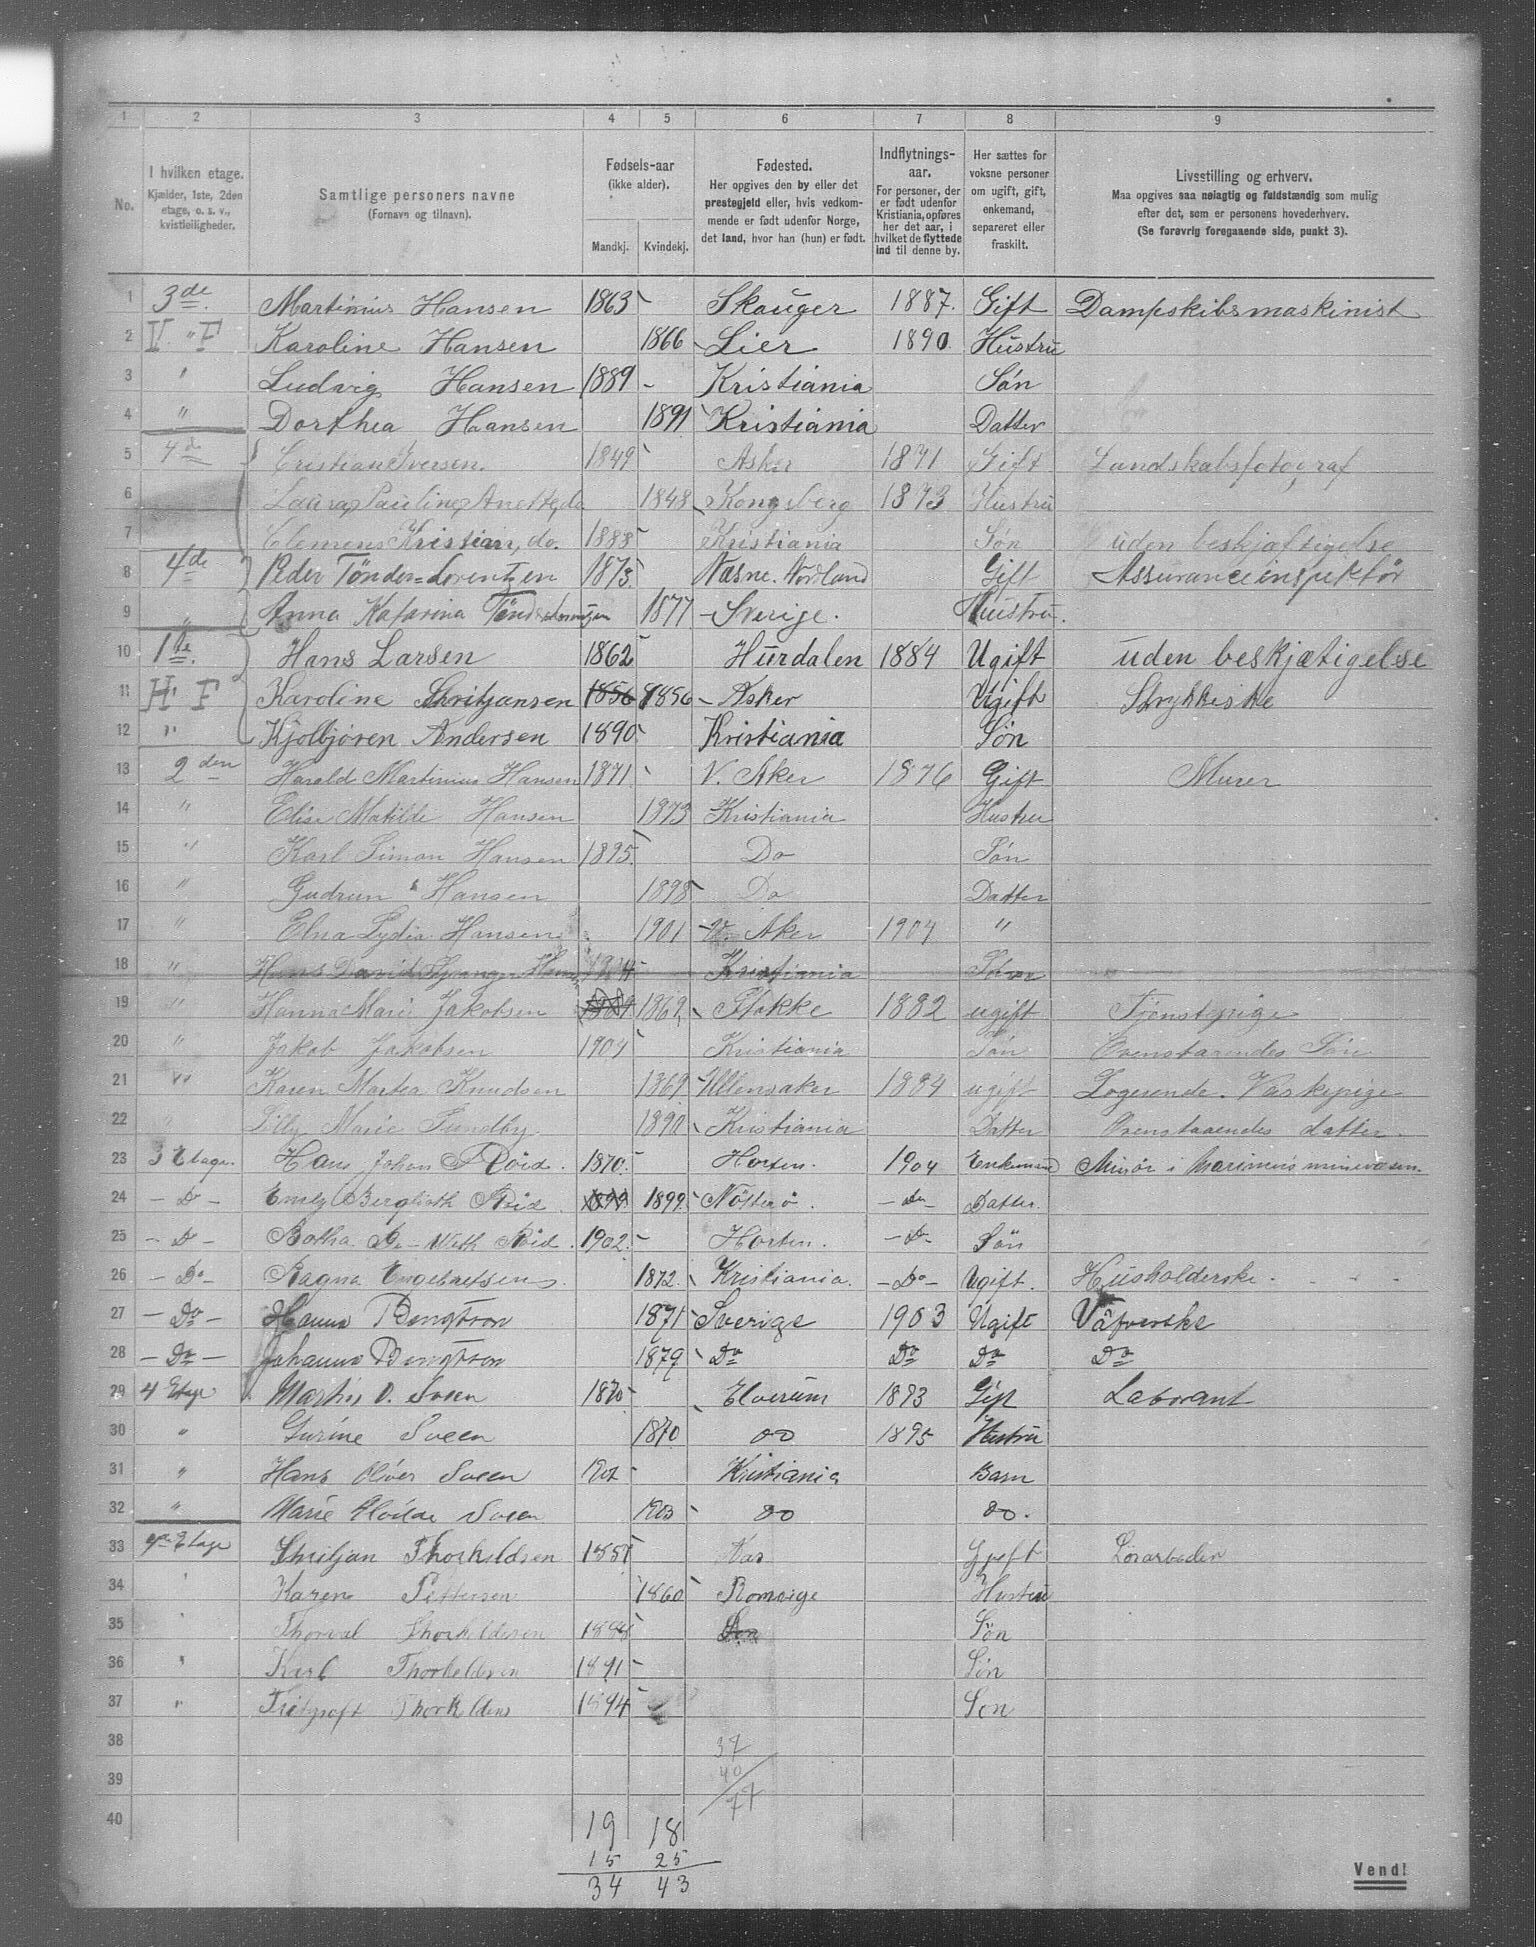 1 2 3 4 5 6 7 8 9
No.
I hvilken etage.
Kjælder, 1ste, 2den
etage, o. s. v.,
kvistleiligheder.
Samtlige personers navne
(Fornavn og tilnavn).
Fødsels-aar
(ikke alder).
Mandkj. Kvindekj.
Fødested.
Her opgives den by eller det
prestegjeld eller, hvis vedkom-
mende er født udenfor Norge,
det land, hvor han (hun) er født.
Indflytnings-
aar.
For personer, der
er født udenfor
Kristiania, opføres
her det aar, i
hvilket de flyttede
ind til denne by.
Her sættes for
voksne personer
om ugift, gift,
enkemand,
separeret eller
fraskilt.
Livsstilling og erhverv.
Maa opgives saa nøiagtig og fuldstændig som mulig
efter det, som er personens hovederhverv.
(Se forøvrig foregaaende side, punkt 3).
1 3de Martinius Hansen 1863 Skauger 1887. Gift Dampskibsmaskinist
2 V. " F Karoline Hansen 1866 Lier 1890 Hustru
3 " Ludvig Hansen 1889 Kristiania Søn
4 " Dorthea Hansen 1891 Kristiania Datter
5 4de Cristian Iversen. 1849 Asker 1871 Gift Landskabsfotograf
6 Laura Pauline Anette, do 1848 Kongsberg 1873 Hustru
7 Clemens Kristian, do. 1883 Kristiania Søn uden beskjæftigelse
8 4de Peder Tönder=Lorentzen 1873 Næsne. Nordland Gift Assuranceinspektör
9 " Anna Katarina 1877 Sverige. Hustru.
10 1ste. Hans Larsen 1862 Hurdalen 1884 Ugift uden beskjætigelse
11 H. F Karoline Chritjansen 1856 1856 Asker Ugift Strykkiske
12 " Kjølbjøren Andersen 1890 Kristiania Søn
13 2den Harald Martinius Hansen 1871 V. Aker 1876 Gift Murer
14 " Elise Matilde Hansen 1873 Kristiania Hustru
15 " Karl Simon Hansen 1895 Do Søn
16 " Gudrun " Hansen 1898 Do Datter
17 " Elna Lydia Hansen 1901 V. Aker 1904 "
18 " Hans David Kristiania
19 " Hanna Marie Jakobsen 1869 Stokke 1882 ugift Tjenstepige
20 " Jakob Jakobsen 1904 Kristiania Søn Ovenstaaendes Søn
21 " Karen Marter Knudsen 1869 Ullensaker 1884 ugift Logerende. Vaskepige
22 " Lilly Marie Sundby 1890 Kristiania Datter Ovenstaaendes datter.
23 3 Etage. Hans Johan Röid. 1870. Horten. 1904 Enkemand Minör i Marinens minevæsen
24 - D - Emly Berglioth Röid. 1899 1899. Nötterö. - Do - Datter.
25 - D - Botha De-Weth Röid. 1902. Horten. - D - Sön
26 - Do - Ragna Engebretsen. 1872. Kristiania. - Do - Ugift. Husholderske.
27 - Do - Hanna Bengtson 1871 Sverige 1903 Ugift Väfverske
28 - Do - Johanna Bengtson 1879 Do Do Do Do
29 4 Etage Martin O. Sveen 1870 Elverum 1893 Gift Laborant
30 " Gurine Sveen 1870 do 1895 Hustru
31 " Hans Oliver Sveen Kristiania Barn
32 " Marie Sveen 1903 do do.
33 Etage Thorkeldsen Gift Løsarbeder
34 Karen Pettersen 1860 Hustru
35 Thorval Thorkeldsen Søn
36 " Karl Thorkeldsen 1891 Søn
37 " 1894 Son
38 37
39 40
77
40
19 18
15 25
34 43
Vend!